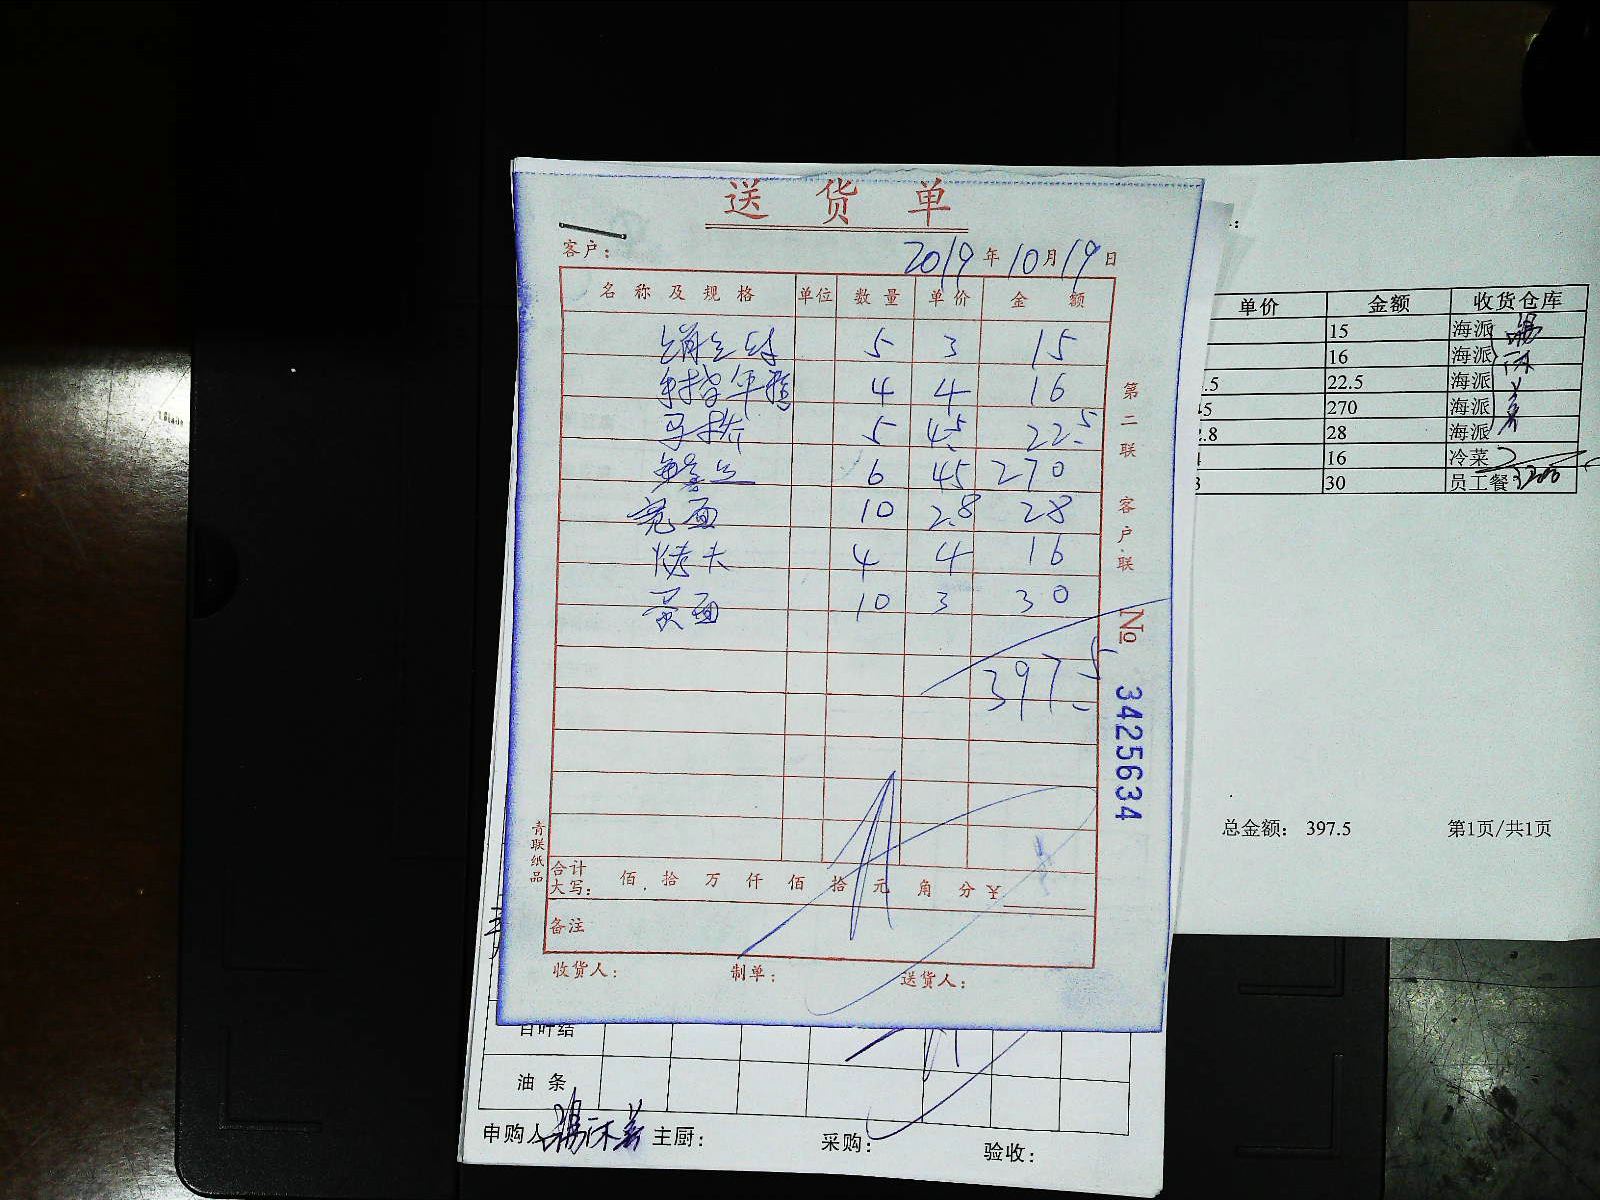 送货单
客户：
2019年10月19日
名称及规格 单位 数量 单价 金额
5 3 15
4 4 16
5 4.5 22.5
鳝丝 6 45 270
宽面 10 2.8 28
烤夫 4 4 16
面 10 3 30
397.5
合计大写： 佰 拾 万 仟 佰 拾 元 角 分 ¥
备注
收货人： 制单： 送货人：
第二联 客户联
No 3425634
青联纸品
单价 金额 收货仓库
15 海派
16 海派
.5 22.5 海派
45 270 海派
2.8 28 海派
4 16 冷菜
3 30 员工餐
总金额： 397.5 第1页/共1页
百叶结
油条
申购人 主厨： 采购： 验收：